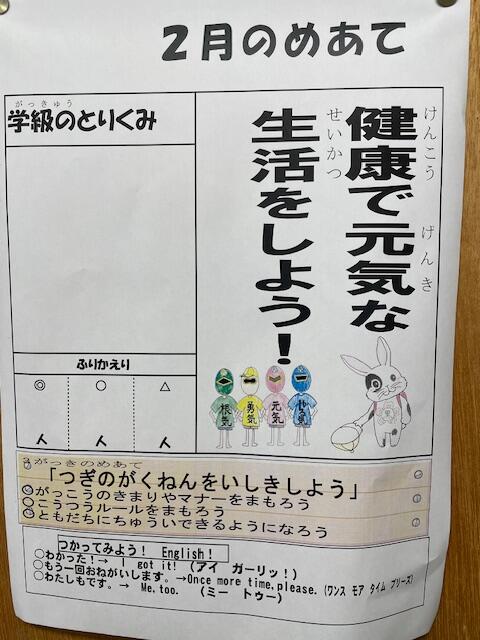 2月のめあて
がっきゅう
学級のとりくみ
けんこう げんき
健康で元気な
せいかつ
生活をしよう!
ふりかえり
◎ ○ △
人 人 人
根気 勇気 元気 やる気
3がっきのめあて
「つぎのがくねんをいしきしよう」
◎がっこうのきまりやマナーをまもろう
○こうつうルールをまもろう
○ともだちにちゅういできるようになろう
つかってみよう! English!
○わかった!→ I got it! (アイ ガーリッ!)
○もう一回おねがいします。→Once more time,please. (ワンス モア タイム プリーズ)
○わたしもです。→ Me,too. (ミー トゥー)